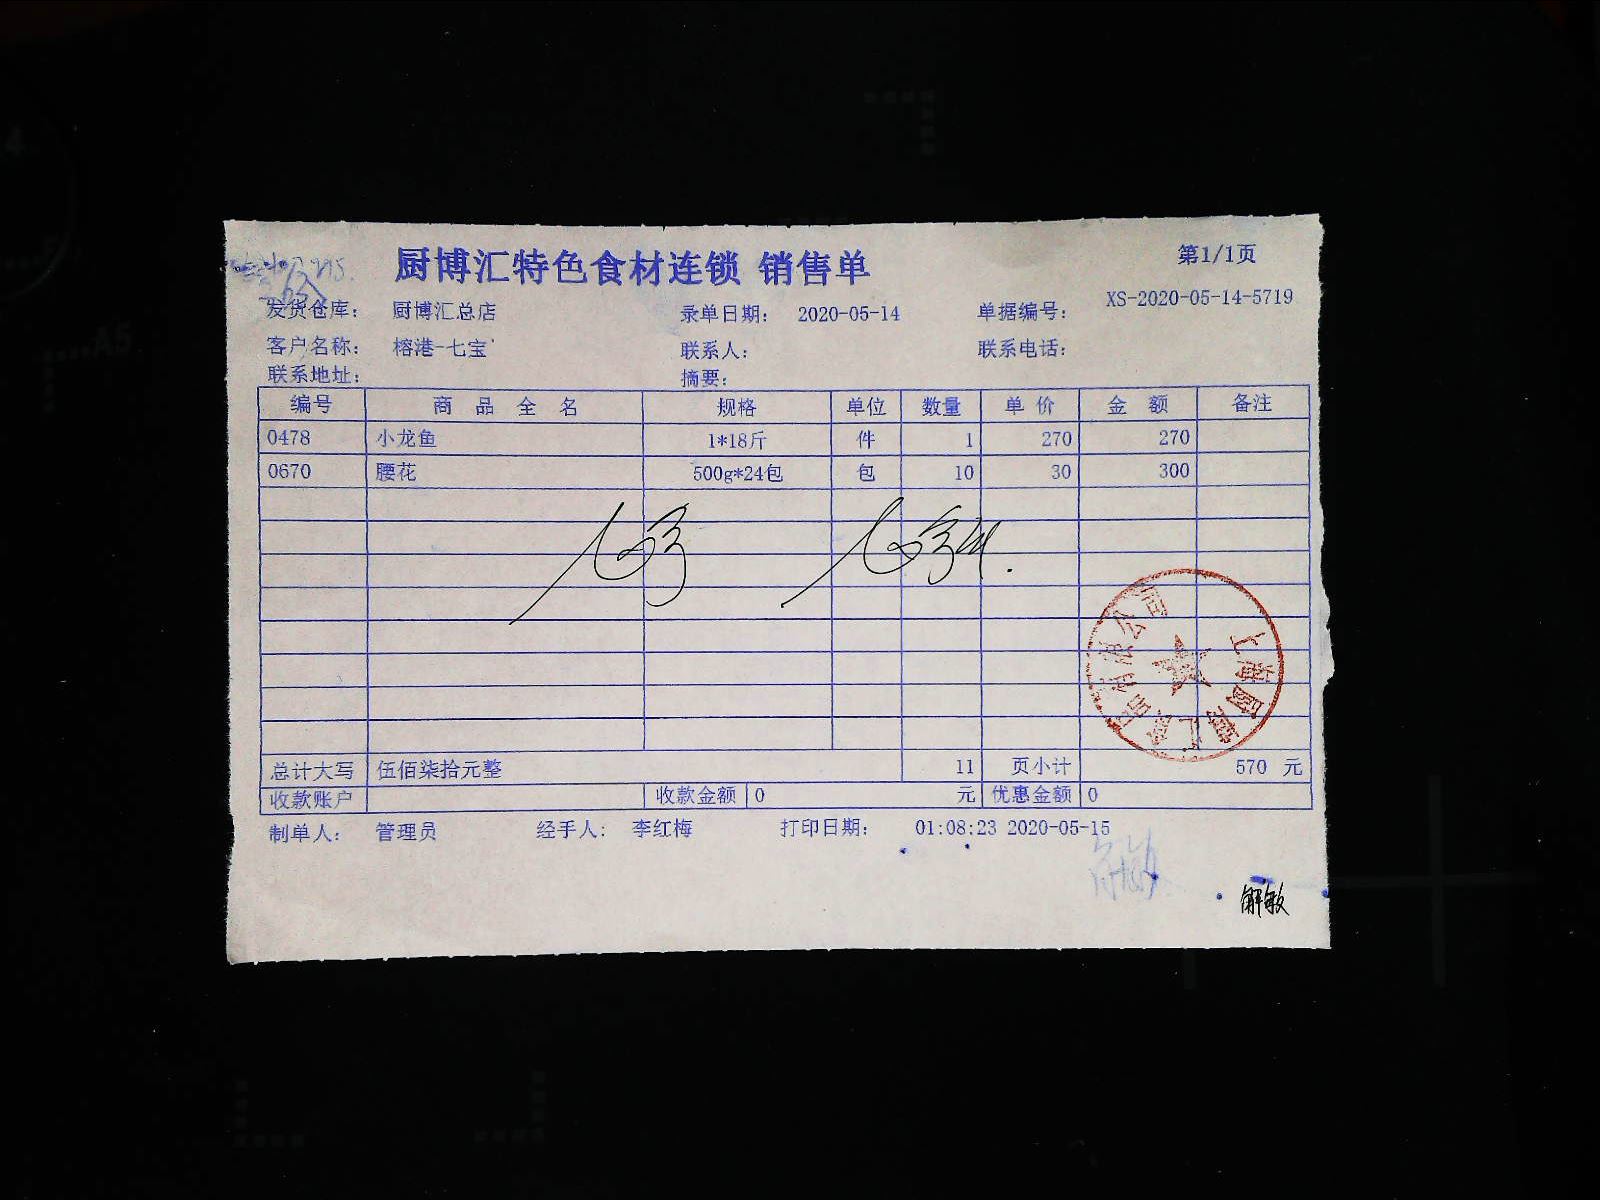 厨博汇特色食材连锁 销售单
第1/1页
发货仓库： 厨博汇总店 录单日期： 2020-05-14 单据编号： XS-2020-05-14-5719
客户名称： 榕港-七宝 联系人： 联系电话：
联系地址： 摘要：
编号 商品全名 规格 单位 数量 单价 金额 备注
0478 小龙鱼 1*18斤 件 1 270 270
0670 腰花 500g*24包 包 10 30 300
上海厨博汇食品有限公司
总计大写 伍佰柒拾元整 11 页小计 570 元
收款账户 收款金额 0 元 优惠金额 0
制单人： 管理员 经手人： 李红梅 打印日期： 01:08:23 2020-05-15
解敏